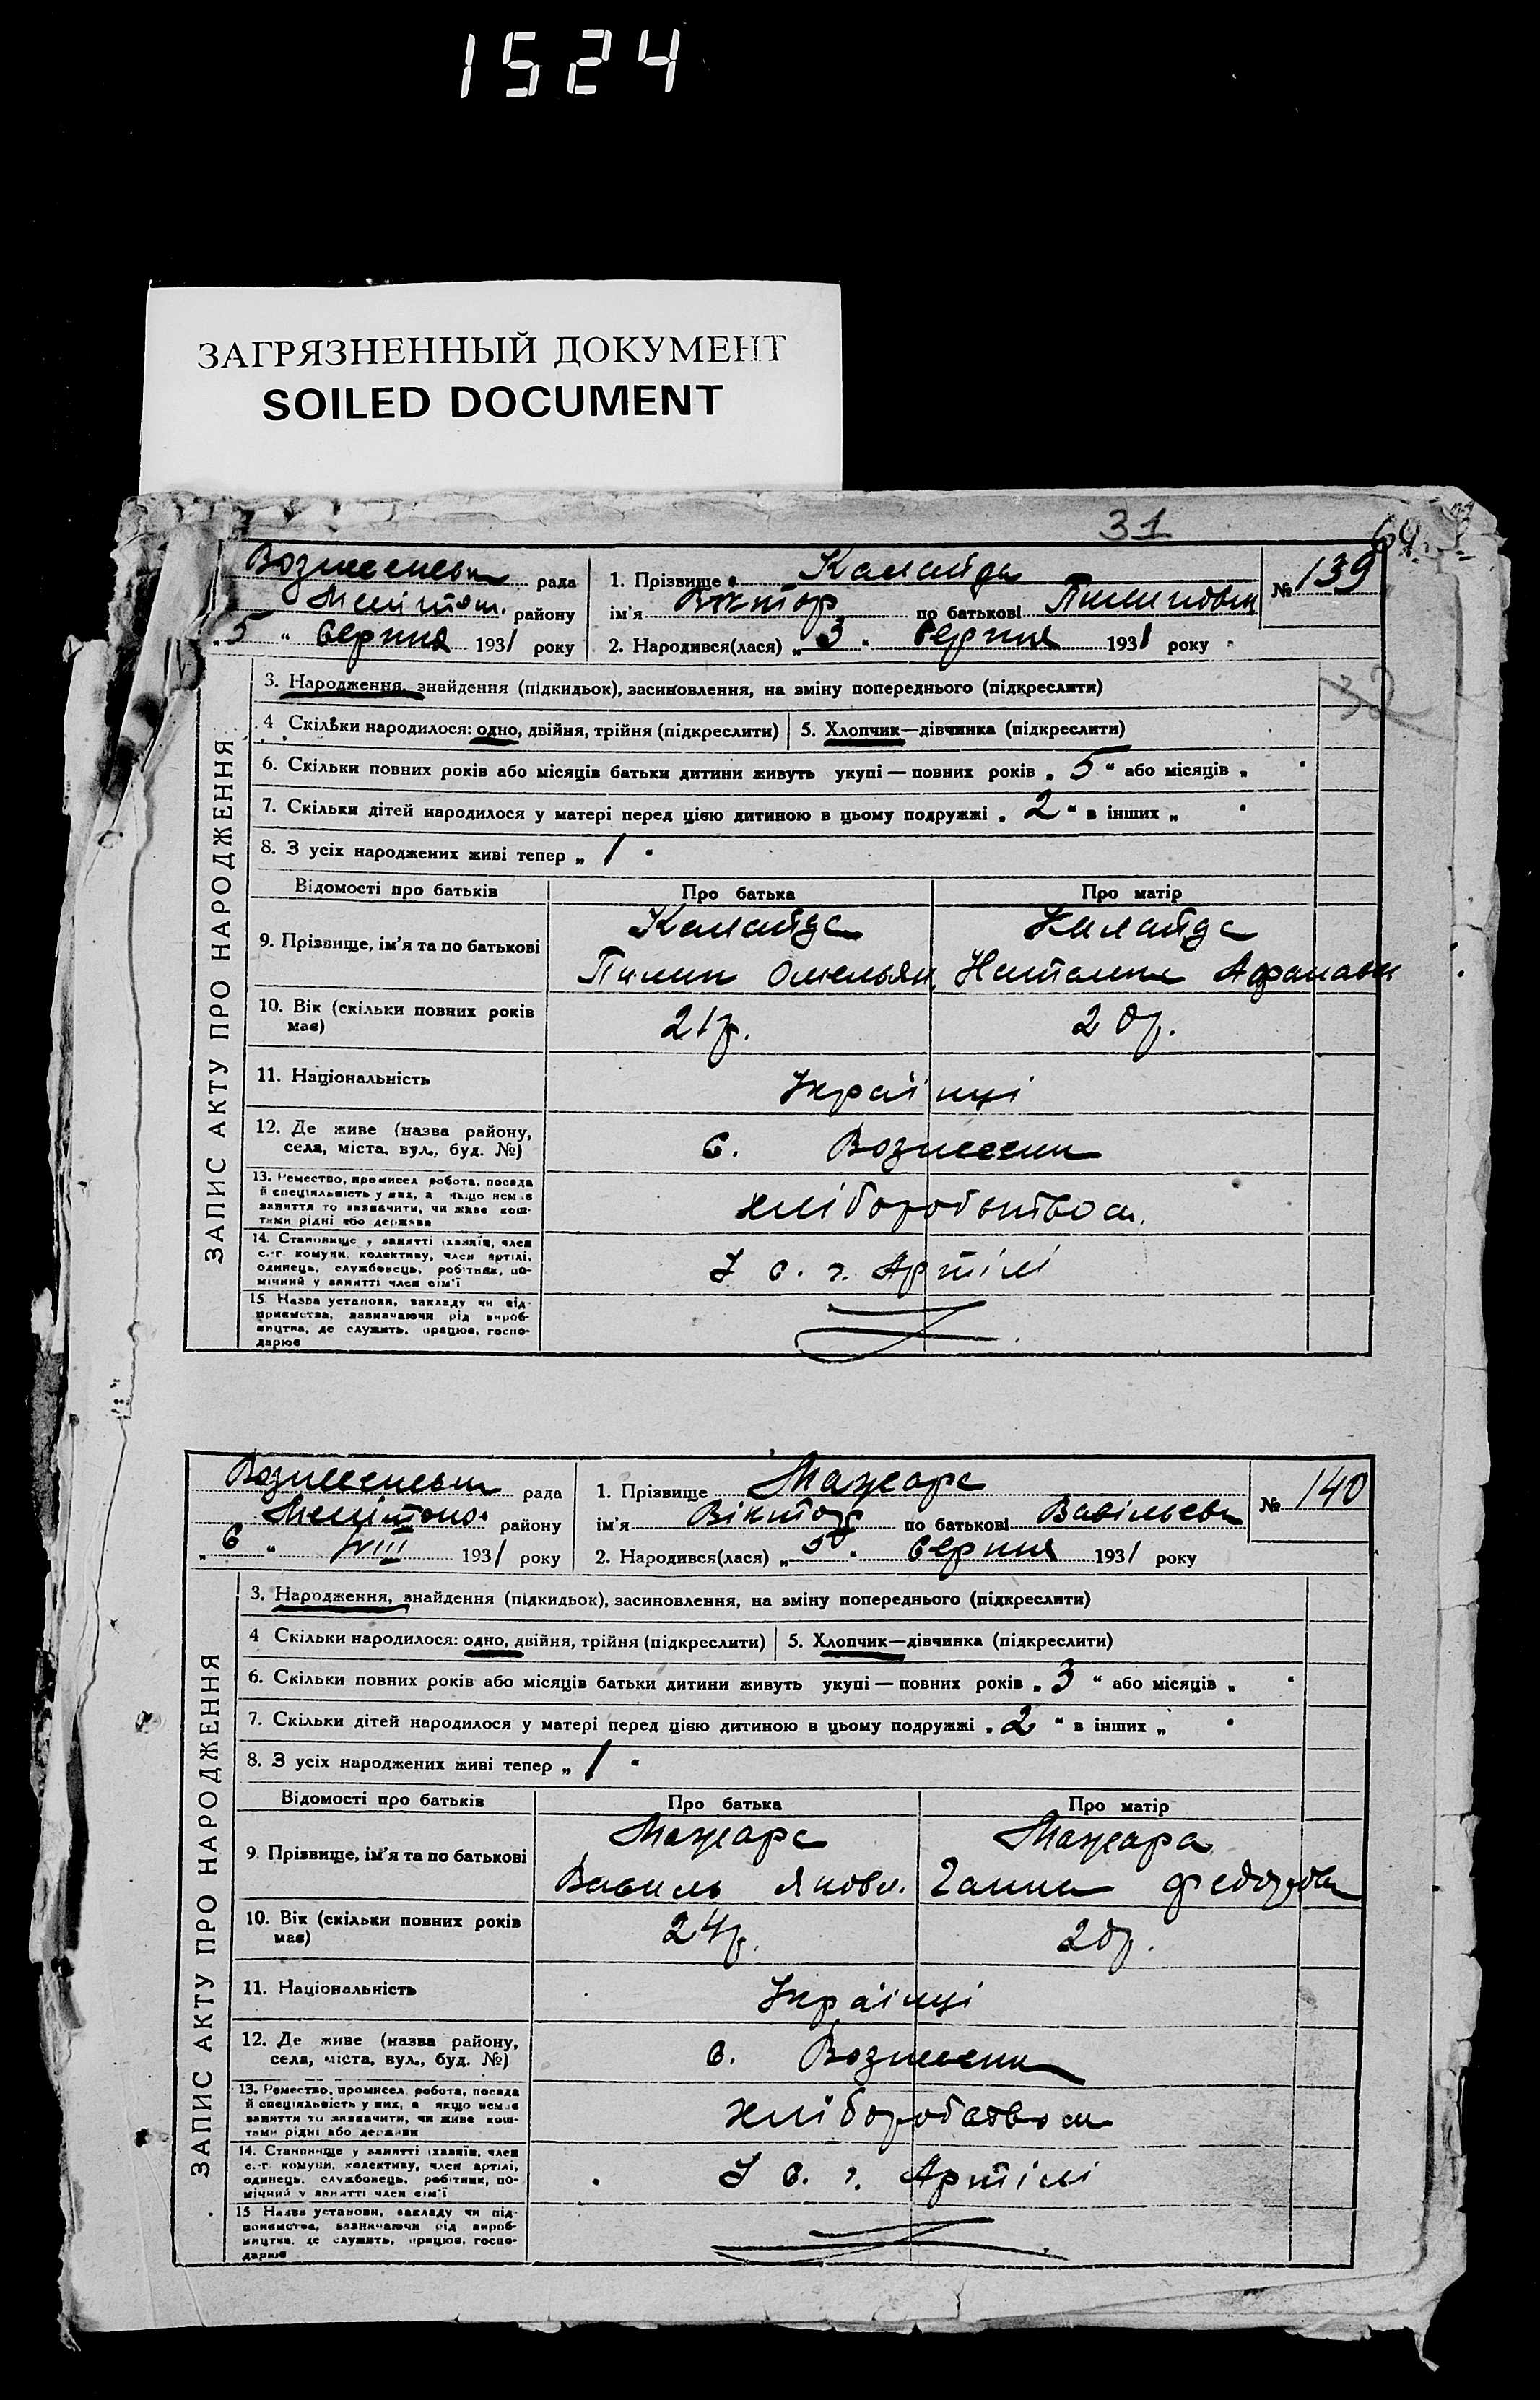 1524
ЗАГРЯЗНЕННЫЙ ДОКУМЕНТ
SOILED DOCUMENT
31
Вознесенськ рада
Меліτοп. району
„5“ серпня 1931 року
1. Прізвище Калайда
ім'я Віктор по батькові Пилипович
2. Народився(лася) „3“ серпня 1931 року
№ 139
32
ЗАПИС АКТУ ПРО НАРОДЖЕННЯ
3. Народження, знайдення (підкидьок), засиновлення, на зміну попереднього (підкреслити)
4 Скільки народилося: одно, двійня, трійня (підкреслити) 5. Хлопчик—дівчинка (підкреслити)
6. Скільки повних років або місяців батьки дитини живуть укупі — повних років „5“ або місяців „
7. Скільки дітей народилося у матері перед цією дитиною в цьому подружжі „2“ в інших „
8. З усіх народжених живі тепер „1
Відомості про батьків Про батька Про матір
9. Прізвище, ім'я та по батькові
Калайда Калайда
Пилип Омельян. Наталія Афанасв
10. Вік (скільки повних років має)
21р. 20р.
11. Національність Українці
12. Де живе (назва району, села, міста, вул., буд. №)
с. Вознесенк
13. Ремество, промисел робота, посада
й спеціяльність у них, а якщо немає
заняття то зазначити, чи живе кош-
тами рідні або держава
хліборобством.
14. Становище у занятті (хазяїн, член
с.-г. комуни, колективу, член артілі,
одинець, службовець, робітник, по-
мічний у занятті член сім'ї
У с. г. Артілі
15. Назва установи, закладу чи під-
приємства, зазначаючи рід вироб-
ництва, де служить, працює, госпо-
дарює
Вознесенськ рада
Мелітопо. району
„6“ VIII 1931 року
1. Прізвище Мажара
ім'я Віктор по батькові Вавільєв
2. Народився(лася) „5“ серпня 1931 року
№ 140
ЗАПИС АКТУ ПРО НАРОДЖЕННЯ
3. Народження, знайдення (підкидьок), засиновлення, на зміну попереднього (підкреслити)
4 Скільки народилося: одно, двійня, трійня (підкреслити) 5. Хлопчик—дівчинка (підкреслити)
6. Скільки повних років або місяців батьки дитини живуть укупі — повних років „3“ або місяців „
7. Скільки дітей народилося у матері перед цією дитиною в цьому подружжі „2“ в інших „
8. З усіх народжених живі тепер „1
Відомості про батьків Про батька Про матір
9. Прізвище, ім'я та по батькові
Мажара Мажара
Вавиль Яковл. Ганна Федоров
10. Вік (скільки повних років має)
24р. 20р.
11. Національність Українці
12. Де живе (назва району, села, міста, вул., буд. №)
с. Вознесенк
13. Ремество, промисел робота, посада
й спеціяльність у них, а якщо немає
заняття то зазначити, чи живе кош-
тами рідні або держави
хліборобством
14. Становище у занятті (хазяїн, член
с.-г. комуни, колективу, член артілі,
одинець, службовець, робітник, по-
мічний у занятті член сім'ї
У с. г. Артілі
15 Назва установи, закладу чи під-
приємства, зазначаючи рід вироб-
ництва, де служить, працює, госпо-
дарює